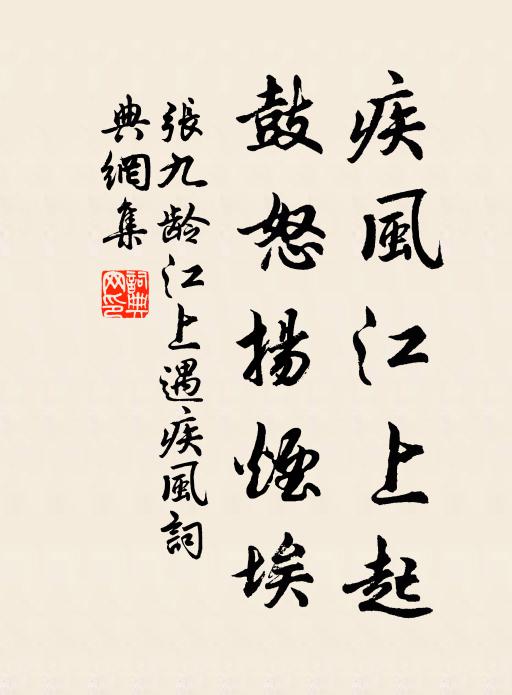 疾風江上起
鼓怒揚煙埃
張九齡江上遇疾風詞
典網集
詞典網印